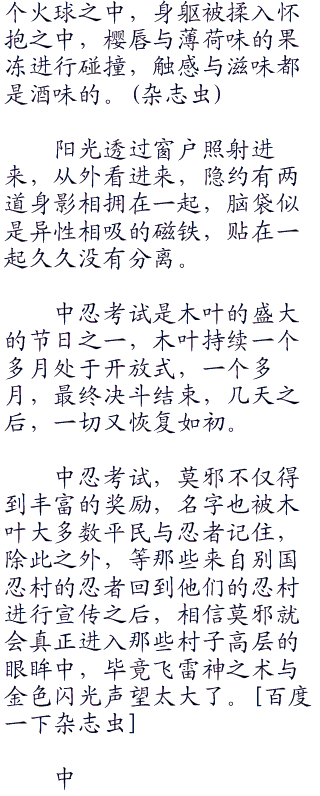 个火球之中，身躯被揉入怀
抱之中，樱唇与薄荷味的果
冻进行碰撞，触感与滋味都
是酒味的。(杂志虫)
阳光透过窗户照射进
来，从外看进来，隐约有两
道身影相拥在一起，脑袋似
是异性相吸的磁铁，贴在一
起久久没有分离。
中忍考试是木叶的盛大
的节日之一，木叶持续一个
多月处于开放式，一个多
月，最终决斗结束，几天之
后，一切又恢复如初。
中忍考试，莫邪不仅得
到丰富的奖励，名字也被木
叶大多数平民与忍者记住，
除此之外，等那些来自别国
忍村的忍者回到他们的忍村
进行宣传之后，相信莫邪就
会真正进入那些村子高层的
眼眸中，毕竟飞雷神之术与
金色闪光声望太大了。[百度
一下杂志虫]
中